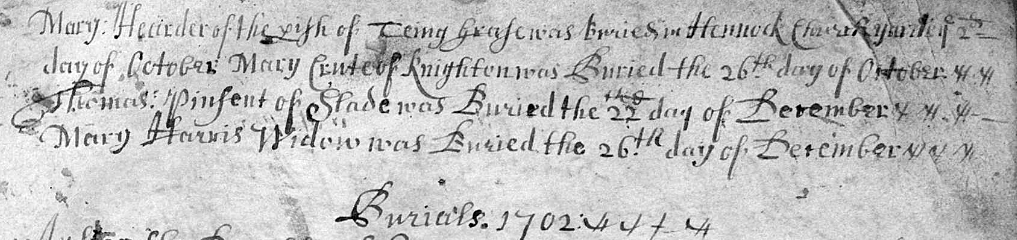 Mary: Hearder of the pish of Teinggrase was buried in Hennock Church yard ye 2th
day of October Mary Crute of Knighton was Buried the 26th day of October
Thomas: Pinsent of Slade was Buried the 22 day of December
Mary Harris Widow was Buried the 26th day of December
Burials. 1702: